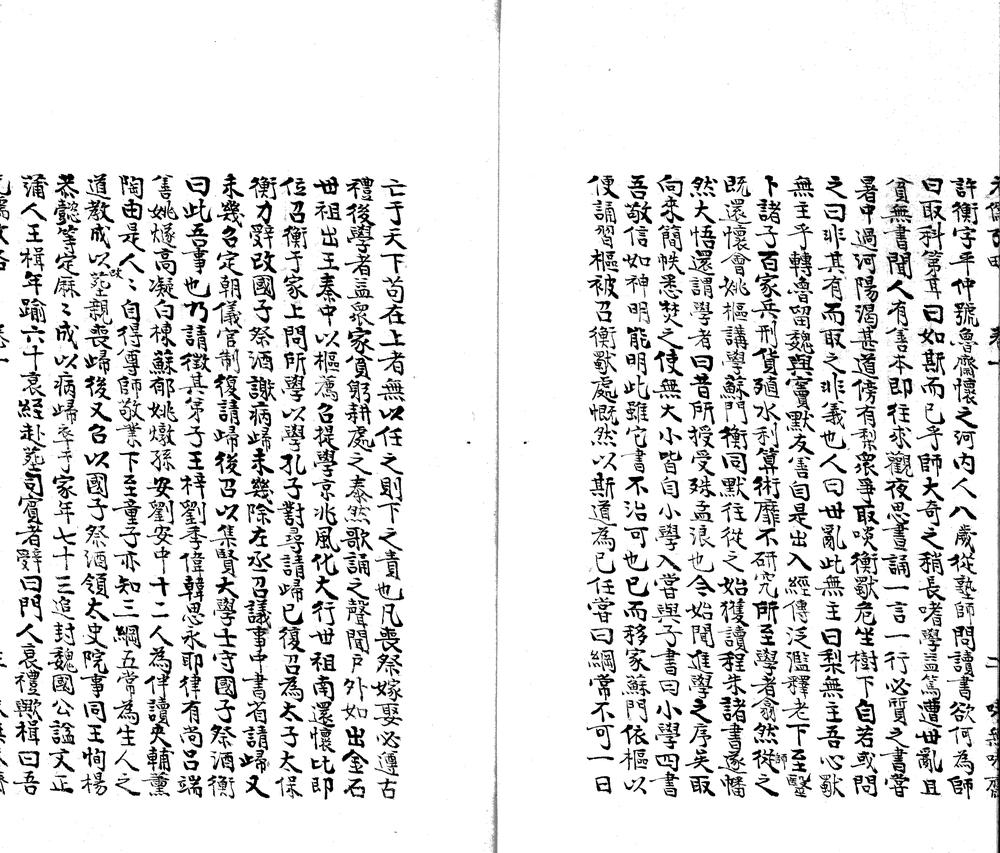 許衡字平仲號魯齋懷之河內人八歲從塾師問讀書欲何為師
曰取科第耳曰如斯而已乎師大奇之稍長嗜學益篤遭世亂且
貧無書聞人有善本即往求觀夜思晝誦一言一行必質之書嘗
暑中過河陽渴甚道傍有梨衆爭取啖衡獨危坐樹下自若或問
之曰非其有而取之非義也人曰世亂此無主曰梨無主吾心獨
無主乎轉魯留魏與竇默友善自是出入經傳泛濫釋老下至毉
卜諸子百家兵刑貨殖水利算術靡不研究所至學者翕然從之師
既還懷會姚樞講學蘇門衡同默往從之始獲讀程朱諸書遂幡
然大悟還謂學者曰昔所授受殊孟浪也今始聞進學之序矣取
向來簡帙悉焚之使無大小皆自小學入嘗與子書曰小學四書
吾敬信如神明能明此雖它書不治可也已而移家蘇門依樞以
便誦習樞被召衡獨處慨然以斯道為己任嘗曰綱常不可一日
亡于天下苟在上者無以任之則下之責也凡喪祭嫁娶必遵古
禮後學者益衆家貧躬耕處之泰然歌誦之聲聞戶外如出金石
世祖出王秦中以樞薦召提學京兆風化大行世祖南還懷比即
位召衡于家上問所學以學孔子對尋請歸已復召為太子太保
衡力辭改國子祭酒謝病歸未幾除左丞召議事中書省請歸又
未幾召定朝儀官制復請歸後召以集賢大學士守國子祭酒衡
曰此吾事也乃請徵其弟子王梓劉季偉韓思永耶律有尚呂端
善姚燧高凝白棟蘇郁姚燉孫安劉安中十二人為伴讀夾輔薰
陶由是人人自得尊師敬業下至童子亦知三綱五常為生人之
道教成以塟親喪歸後又召以國子祭酒領太史院事同王恂楊
恭懿等定厤厤成以病歸卒于家年七十三追封魏國公諡文正
蒲人王楫年踰六十衰絰赴塟司賓者辭曰門人衰禮歟楫曰吾